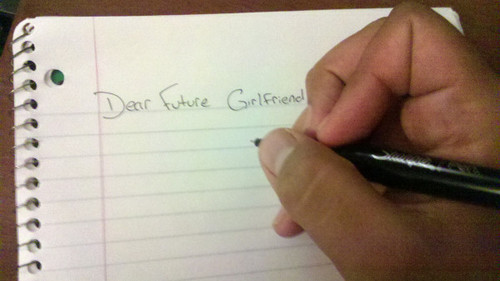 Dear Future Girlfriend